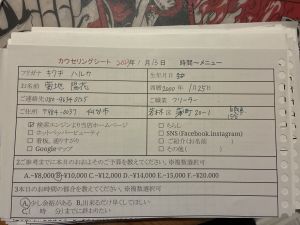 カウンセリングシート 2023年 1月5日 時間〜メニュー
フリガナ キクチ ハルカ
お名前 菊地
生年月日
西暦2000年 1月25日
ご連絡先
ご職業 フリーター
ご住所 〒984-0037
若林区 蒲町20-1
☑ 検索エンジンより当店ホームページ
☐ ホットペッパービューティ
☐ 看板、通りすがり
☐ Googleマップ
☐ チラシ
☐ SNS (Facebook.instagram)
☐ ご紹介(お名前 )
☐ その他( )
2.ご参考までに本日のおおよそのご予算を教えてください。※複数選択可
A.~¥8,000 B.~¥10,000 C.~¥12,000 D.~¥14,000 E.~15,000 F.~¥20,000
3本日のお時間の都合を教えてください。※複数選択可
A.少し余裕がある B.出来るだけ早くしてほしい
C.( 時 分)までに終わりたい